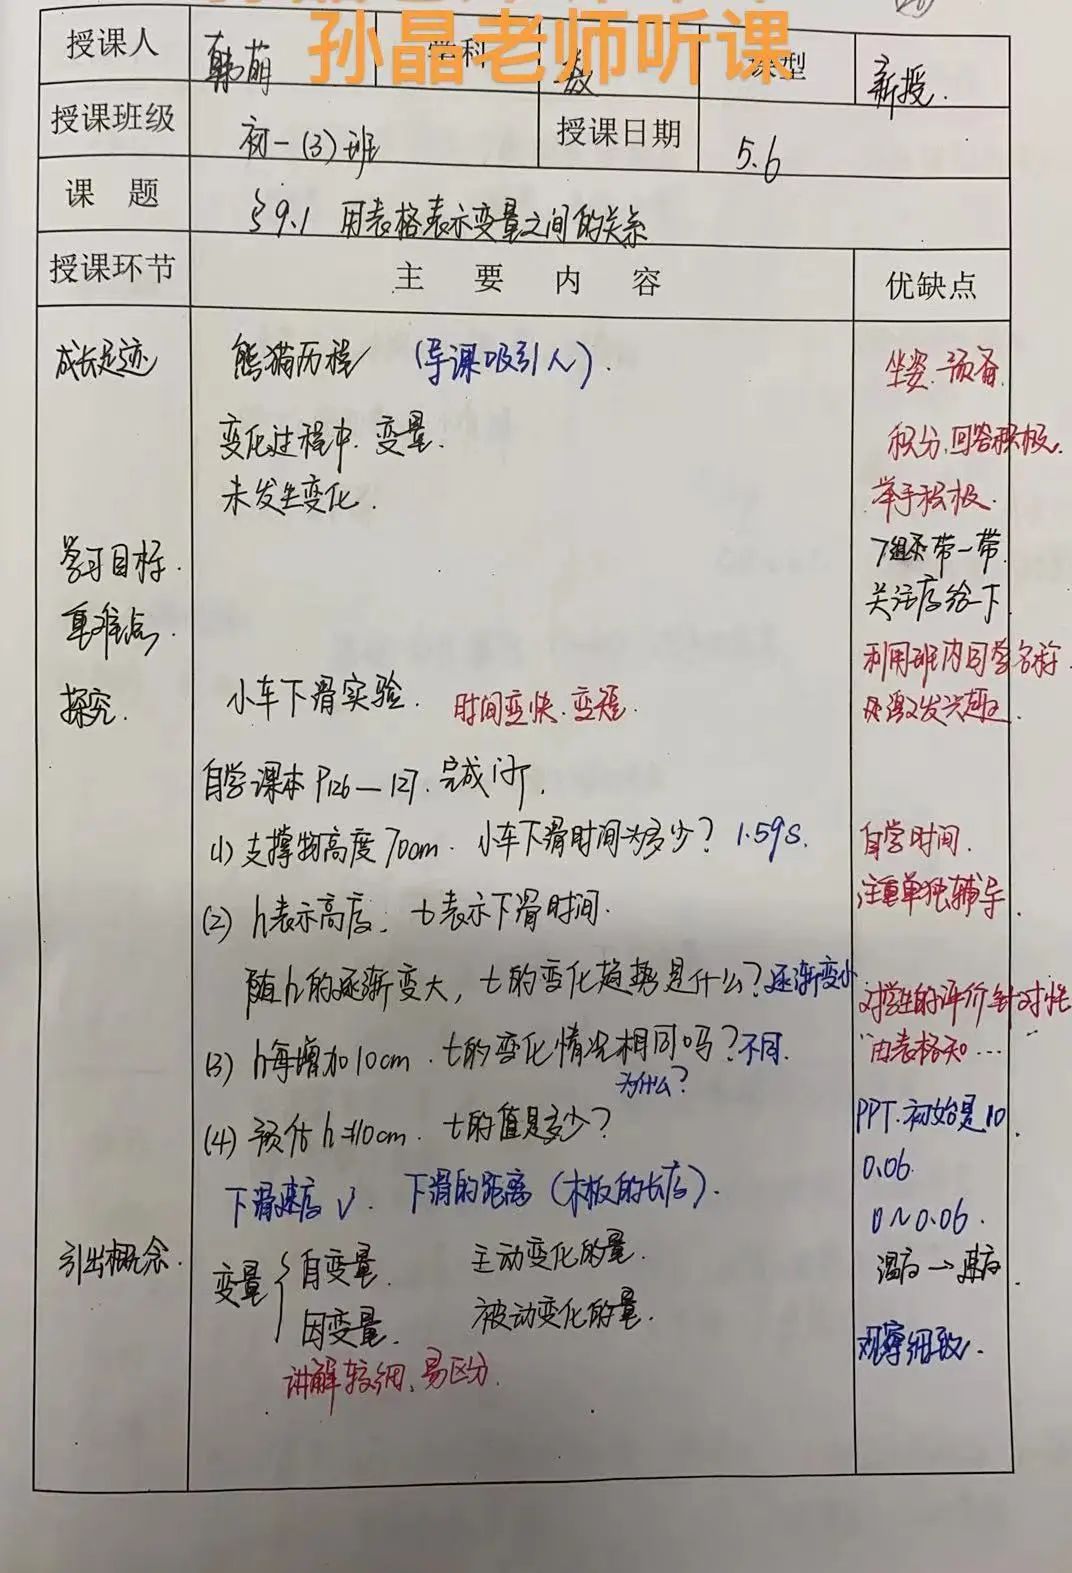 孙晶老师听课
授课人 韩萌 学科 数 课型 新授.
授课班级 初一(3)班 授课日期 5.6
课 题 §9.1 用表格表示变量之间的关系
授课环节 主 要 内 容 优缺点
成长足迹 熊猫历程 (导课吸引人). 坐姿.预备
变化过程中.变量. 积分.回答积极.
未发生变化. 举手积极.
学习目标. 带一带.
重难点. 关注后给一下
利用班内同学名称
探究. 小车下滑实验. 时间变快.变短. 激发兴趣.
自学课本P126—127.完成问
(1) 支撑物高度70cm.小车下滑时间为多少? 1.59s. 自学时间.
注重单独辅导.
(2) h表示高度,t表示下滑时间.
随h的逐渐变大,t的变化趋势是什么?逐渐变小 对学生的评价针对性
(3) h每增加10cm.t的变化情况相同吗?不同. "由表格知…
为什么?
(4) 预估h=110cm.t的值是多少? PPT.初始是10.
0.06.
下滑速度V. 下滑的距离(木板的长度). 0~0.06.
引出概念. 变量{自变量. 主动变化的量. 温度→速度.
因变量. 被动变化的量. 观察细致.
讲解较细,易区分.